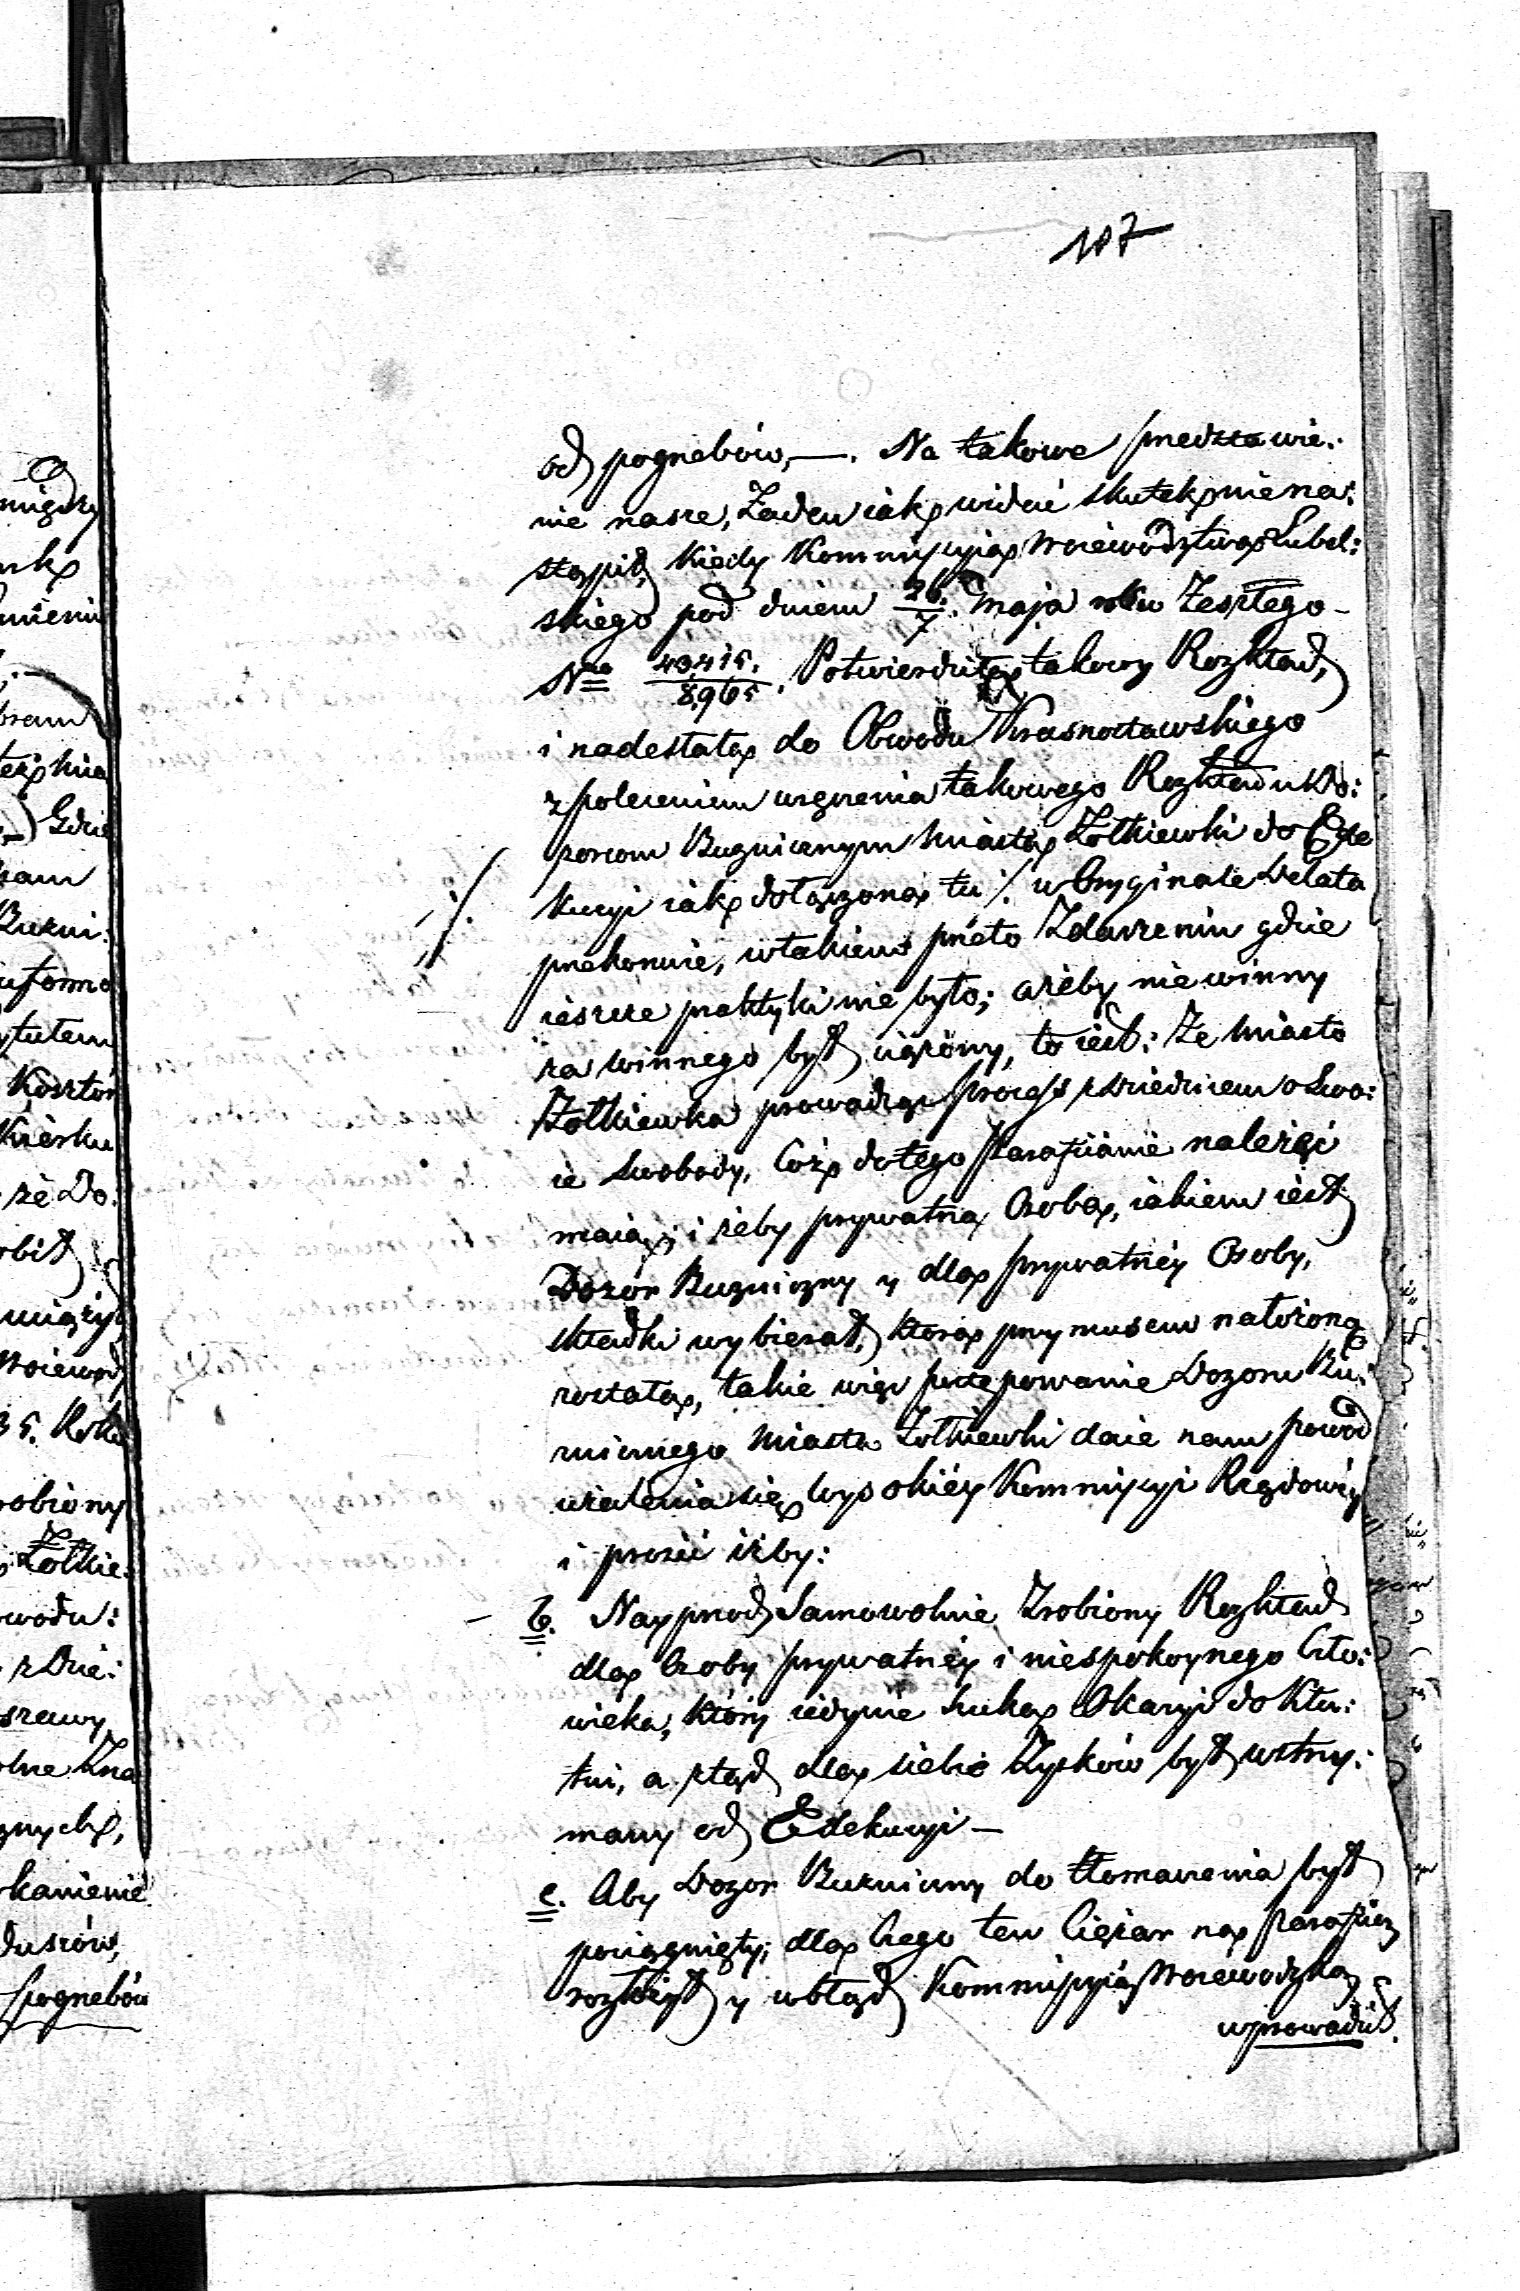 107
od pogrzebów, —. Na takowe przedstawie:
nie nasze, Żaden iak widać skutek nie na:
stąpił, kiedy Kommissyia Woiewództwa Lubel:
skiego pod dniem 26./7. Maja roku Zeszłego –
Nro 40,415./8,965. Potwierdziła takowy Rozkład,
i nadesłała do Obwodu Krasnostawskiego
z poleceniem wręczenia takowego Rozkładu Do:
zorcom Buznicznym Miasta Żołkiewki do Exe
kucyi iak dołączona tu ./. w Oryginale Delata
przekonuie, w takiem przeto Zdarzeniu gdzie
ieszcze praktyki nie było; ażeby niewinny
za winnego był ciążony, to iest: Że Miasto
Żołkiewka prowadząc process z Dziedzicem o Swo:
ie swobody, Cóż do tego Parafiianie należeć
maią, i żeby prywatna Osoba, iakiem iest
Dozór Buzniczny y dla prywatnéy Osoby,
składki wybierał, która przymusem nałożoną
została, takie więc postępowanie Dozoru Bu:
zniczniego Miasta Żołkiewki daie nam powód
użalenia się Wysokiéy Kommissyi Rządowéy
i prosić iżby:
– b. Nayprzod Samowolnie Zrobiony Rozkład
dla Osoby prywatnéy i niespokoynego Czło:
wieka, który iedynie szuka Okazyi do Kłu:
tni, a ztąd dla siebie Zysków był wstrzy:
many od Exekucyi –
c. Aby Dozor Buzniczny do tłomaczenia był
pociągnięty; dla Czego ten Ciężar na Parafiią
rozłożył y w błąd Kommissyią Woiewodzką
wprowadził.
./.
migdzy
Gdzie
Koszton
że Do:
35. Roku
robiony
Żołkie:
z Dzie:
duszów,
pogrzebów